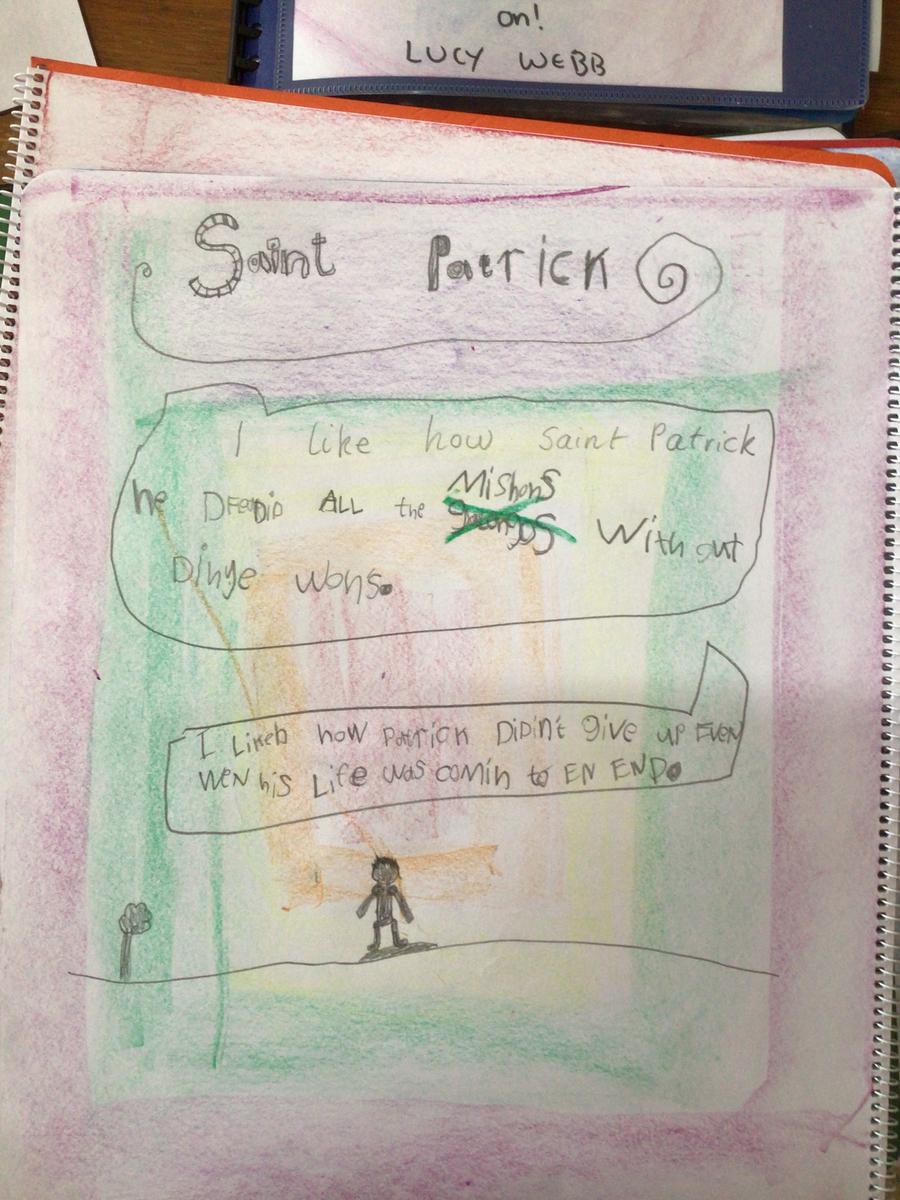 on!
LUCY WEBB
Saint Patrick
I like how Saint Patrick
he DID ALL the Mishons
With out
Dinye wons.
I Likeb how Patrick DiDin't give up EVEN
WEN his Life was comin to EN END.